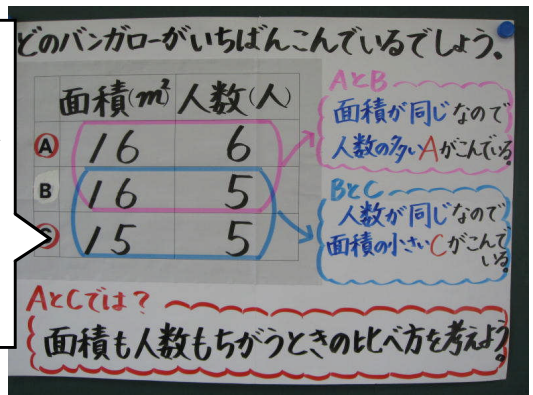 どのバンガローがいちばんこんでいるでしょう。
面積(m²) 人数(人)
A 16 6
B 16 5
C 15 5
AとB
面積が同じなので
人数の多いAがこんでいる。
BとC
人数が同じなので
面積の小さいCがこんで
いる。
AとCでは?
面積も人数もちがうときの比べ方を考えよう。